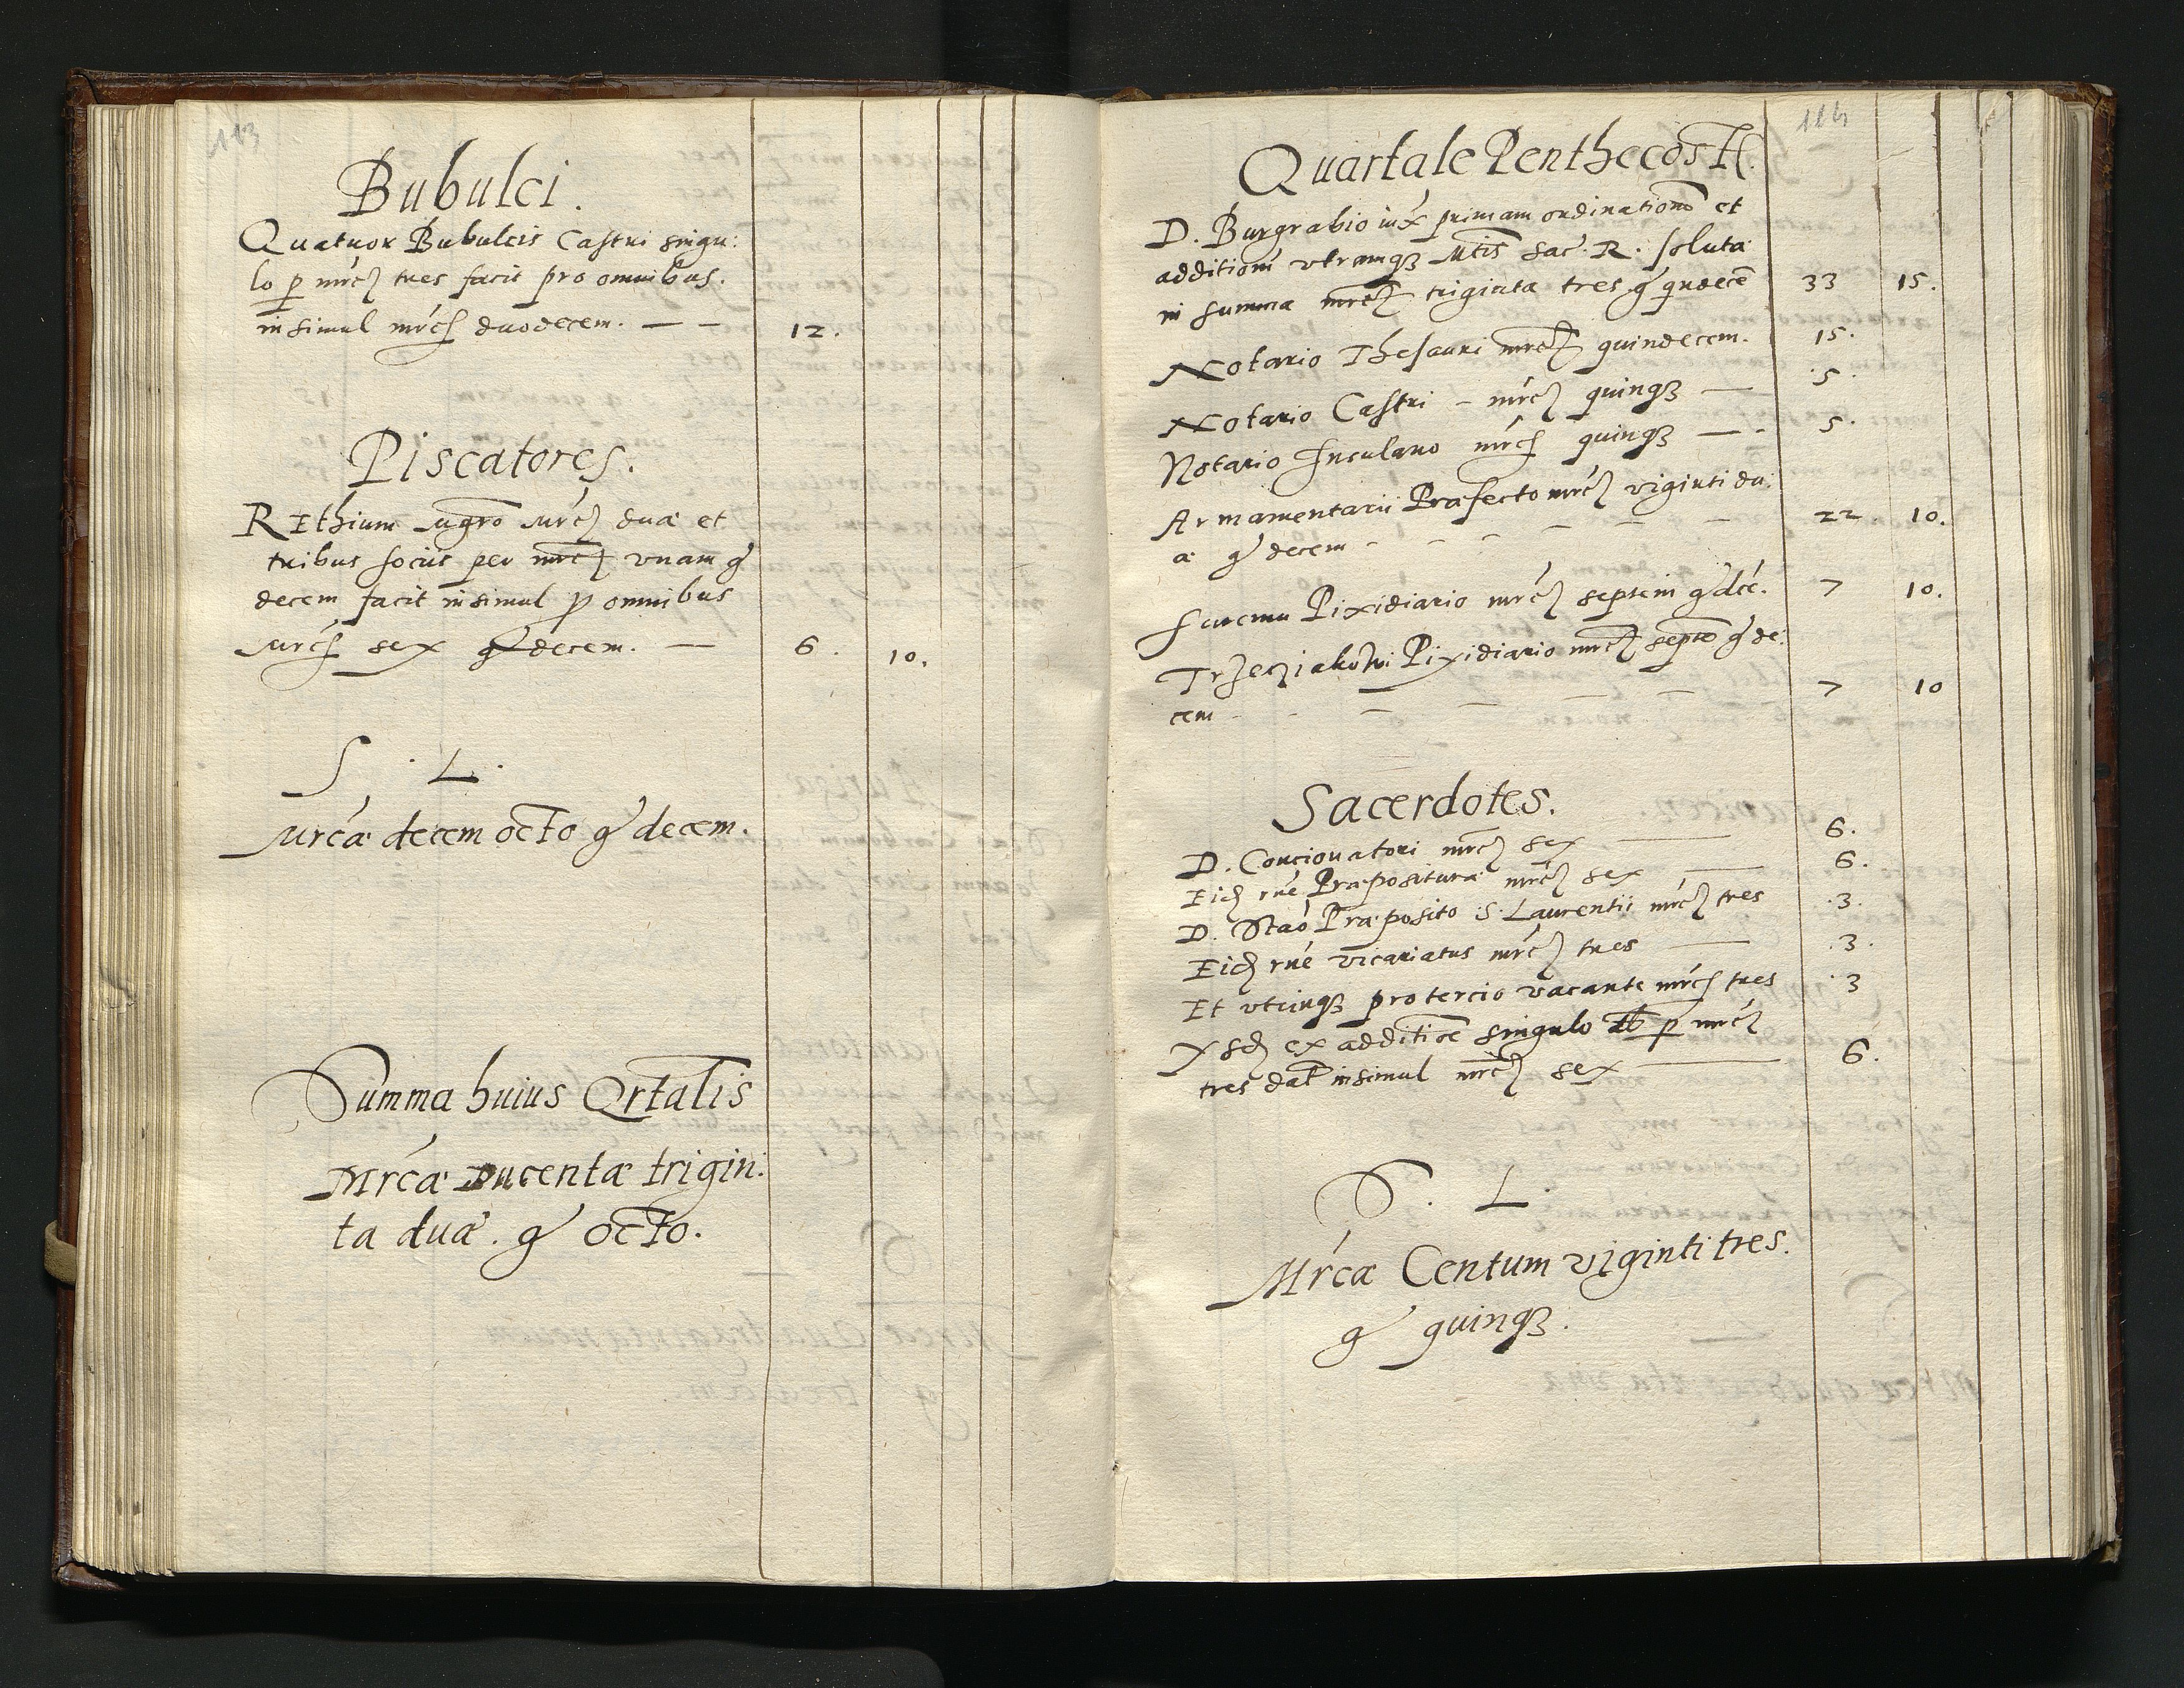 113
Bubulci.
Quatuor Bubulcis Castri singu:
lo p mrcȝ tres facit pro omnibus.
in simul mrcȝ duodecem. — — 12.
Piscatores.
REthium mgro mrcȝ duæ et
tribus socijs per mrcȝ unam gʼ
decem facit insimul p omnibus
mrcȝ sex gʼ decem. — 6. 10.
S. L.
Mrcæ decem octo gʼ decem.
Summa huius Qrtalis
Mrcæ Ducentæ trigin:
ta duæ. gʼ octo.
114
Quartale Penthecost
D. Burgrabio iux primam ordinationē et
additionē utramqȝ Mtis Sac. R. soluta
in summa mrcȝ triginta tres gʼ quīdecē 33 15.
Notario Thesauri mrcȝ quindecem. 15.
Notario Castri – mrcȝ quinqȝ — 5.
Notario Insulano mrcȝ quinqȝ — 5.
Armamentarii Præfecto mrcȝ viginti du:
æ gʼ decem – – – – – – 22 10.
Pixidiario mrcȝ septem gʼ dcē. 7 10.
Trzecziakowi Pixidiario mrcȝ septē gʼ de:
cem – – – – – 7 10
Sacerdotes.
D. Concionatori mrcȝ sex — 6.
Eidȝ rne Præpositura mrcȝ sex — 6.
D. Stao Præposito S. Laurentii mrcȝ tres 3.
Eidȝ rne vicariatus mrcȝ tres — 3.
Et utrinqȝ pro tercio vacante mrcȝ tres 3
ex additioē singulo p mrcȝ
tres dat insimul mrcȝ sex — 6.
S. L.
Mrcæ Centum viginti tres.
gʼ quinqȝ.